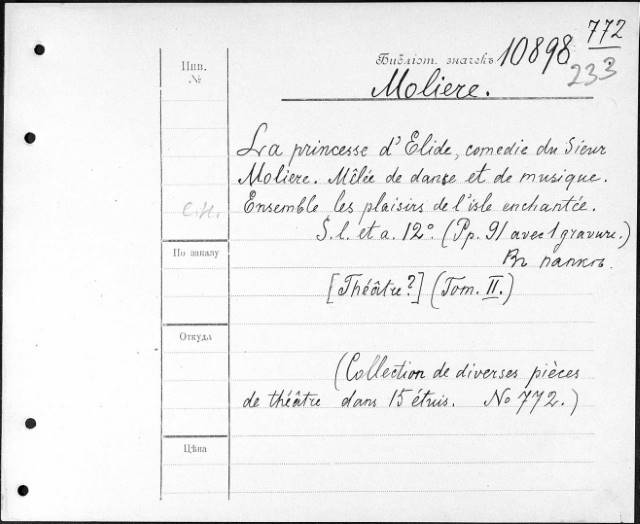 772
Инв. №
Библіот. значекъ 10898
233
Moliere.
La princesse d'Elide, comedie du Sieur
Moliere. Mêlée de danse et de musique.
С.Н. Ensemble les plaisirs de l'isle enchantée.
S. l. et a. 12°. (Pp. 91 avec 1 gravure.)
По заказу
Въ папкѣ.
[Théâtre?] (Tom. II.)
Откуда
(Collection de diverses pièces
de théâtre dans 15 étuis. No 772.)
Цѣна